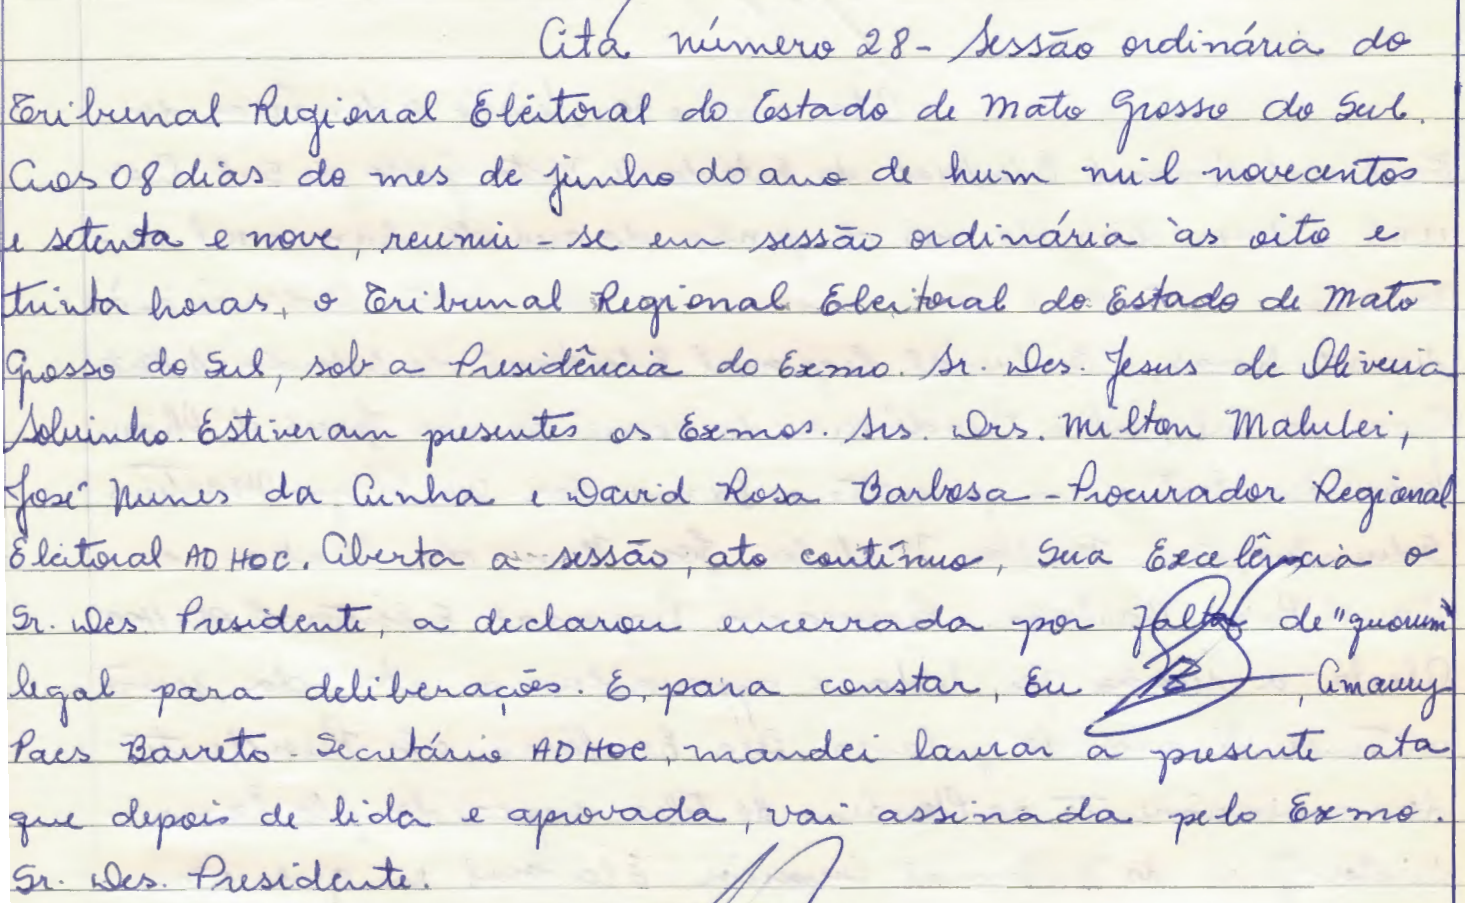 Ata número 28 - Sessão ordinária do
Tribunal Regional Eleitoral do Estado de Mato Grosso do Sul.
Aos 08 dias do mes de junho do ano de hum mil novecentos
e setenta e nove, reuniu-se em sessão ordinária às oito e
trinta horas, o Tribunal Regional Eleitoral do Estado de Mato
Grosso do Sul, sob a Presidência do Exmo. Sr. Des. Jesus de Oliveira
Sobrinho. Estiveram presentes os Exmos. Srs. Drs. Milton Malulei,
José Nunes da Cunha e David Rosa Barbosa - Procurador Regional
Eleitoral AD HOC. Aberta a sessão, ato contínuo, Sua Excelência o
Sr. Des Presidente, a declarou encerrada por falta de "quorum"
legal para deliberações. E, para constar, Eu , Amaury
Paes Barreto - Secretário AD HOC, mandei lavrar a presente ata
que depois de lida e aprovada, vai assinada pelo Exmo.
Sr. Des. Presidente.